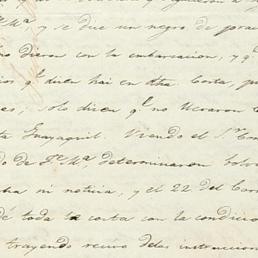 y se dice un negro de
no dieron con la embarcacion, y q.
q.e dicen hai en dha Costa, p
es; solo dicen q.e no llevaron C
ta Guayaquil. Viendo el S.or Com
do de S.ta M.a, determinaron bolv
cha mi noticia, y el 22 del Corr
dé toda la costa con la condicion
trayendo recivo delas instruccion